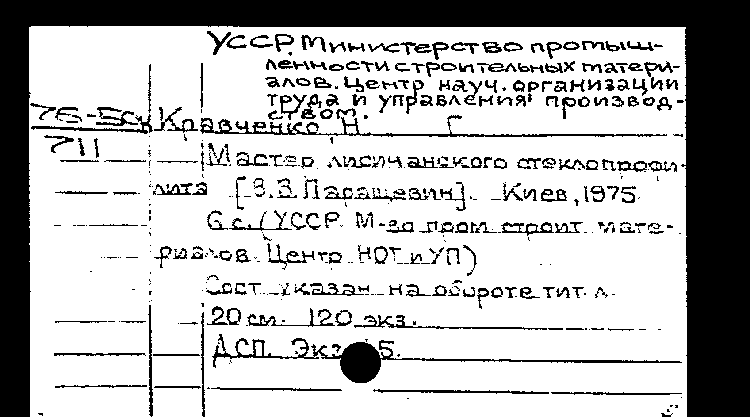 УССР. Министерство промыш-
ленности строительных матери-
алов. Центр науч. организации
труда и управления производ-
ством.
76-5ск Кравченко, Н. Г
711
Мастер лисичанского стеклопрофи-
лита [В.З. Паращевин]. Киев, 1975
6 с. (УССР. М-во пром строит. мате-
риалов. Центр НОТ и УП)
Сост. указан на обороте тит. л.
20 см. 120 экз.
ДСП. Экз 5.